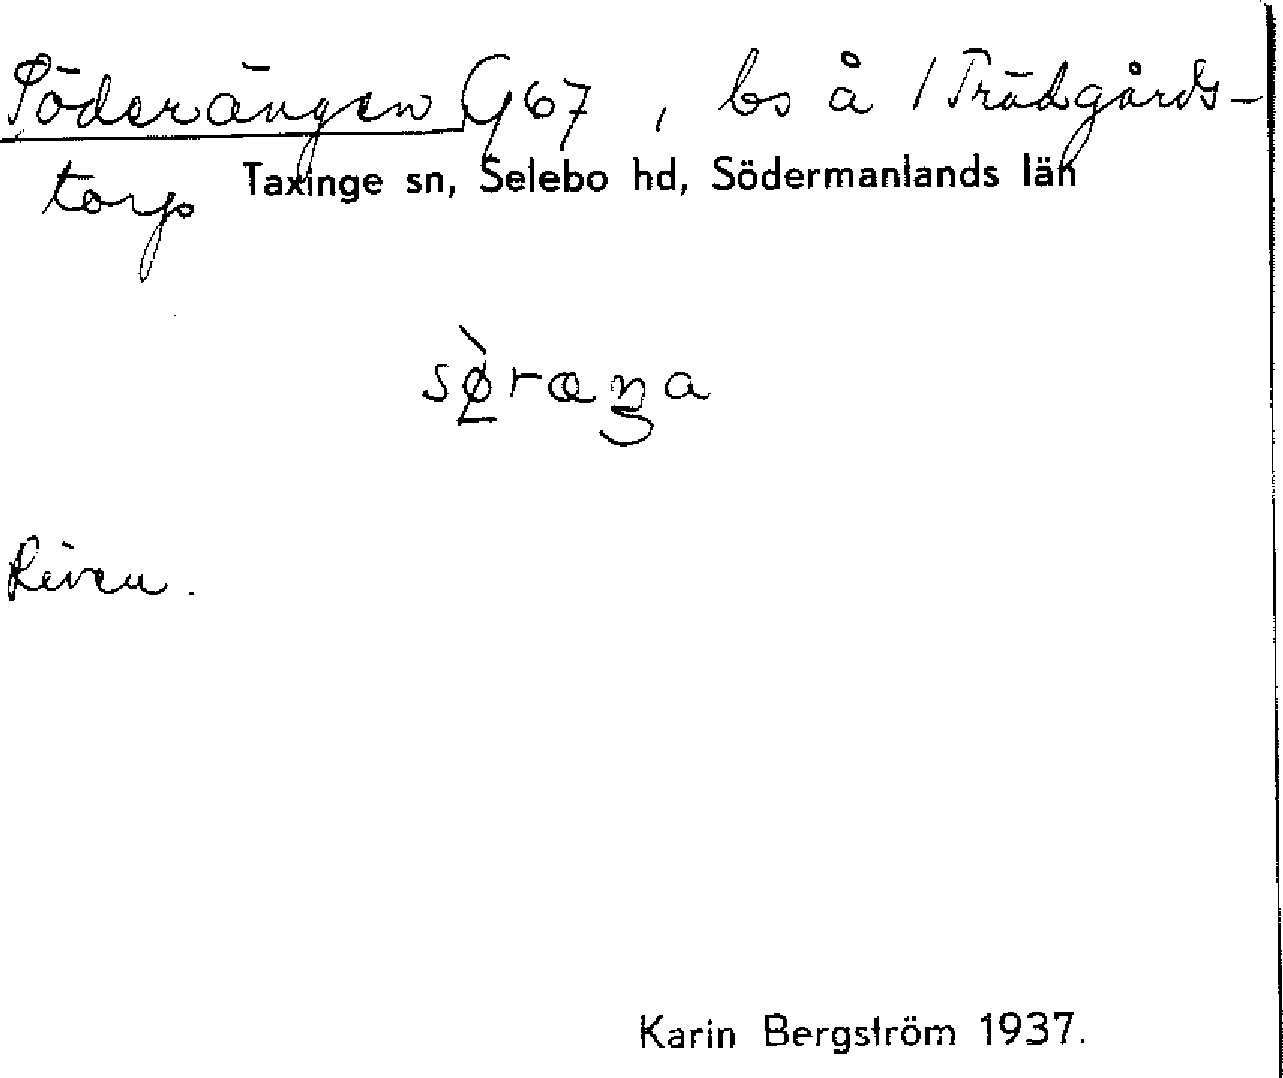 Söderängen G67, bs å 1 Trädgårds-
torp
Taxinge sn, Selebo hd, Södermanlands län
sø̀ræŋa
Riven.
Karin Bergström 1937.